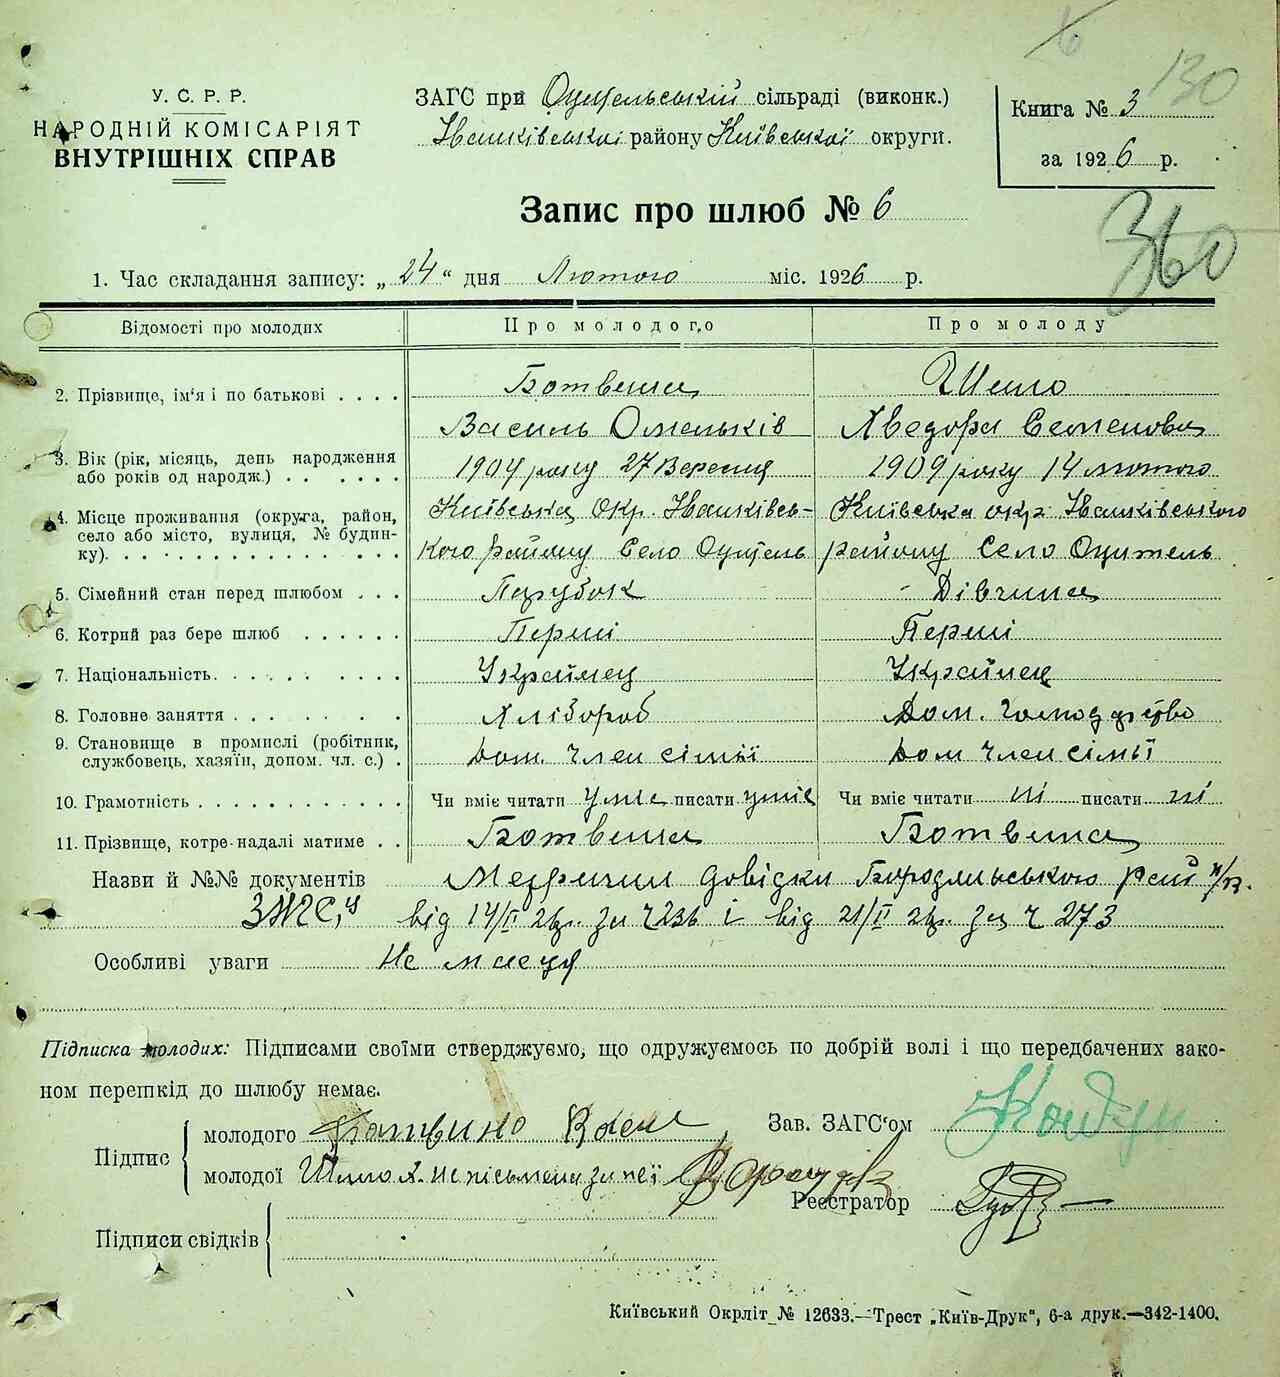 6
130
У. С. Р. Р.
НАРОДНІЙ КОМІСАРІЯТ
ВНУТРІШНІХ СПРАВ
ЗАГС при Оцительській сільраді (виконк.)
Іванківської району Київської округи.
Книга № 3
за 1926 р.
Запис про шлюб № 6
360
1. Час складання запису: „24“ дня Лютого міс. 1926 р.
Відомості про молодих
Про молодого
Про молоду
2. Прізвище, ім'я і по батькові . . . .
Ботвина
Василь Омельків
Шело
Хведора Семенова
3. Вік (рік, місяць, день народження або років од народж.) . . . . . .
1904 року 27 Вересня
1909 року 14 лютого
4. Місце проживання (округа, район, село або місто, вулиця, № будинку). . . . . . . . . . . . . .
Київська Окр. Іванківсь-
кого району Село Оцитель
Київська окр Іванківського
району Село Оцитель
5. Сімейний стан перед шлюбом . . .
Парубок
Дівчина
6. Котрий раз бере шлюб . . . . . .
Перші
Перші
7. Національність. . . . . . . . . .
Украйнец
Украйнец
8. Головне заняття . . . . . . . . .
Хлібороб
Дом. господарство
9. Становище в промислі (робітник, службовець, хазяїн, допом. чл. с.) .
Доп. Член сімьї
Доп Член сімьї
10. Грамотність . . . . . . . . . . .
Чи вміє читати уміє писати уміє
Чи вміє читати ні писати ні
11. Прізвище, котре надалі матиме . .
Ботвина
Ботвина
Назви й №№ документів Метричні довідки Бородянського рай
ЗАГС'у від 17/II 26р. за ч 236 і від 21/II 26р. за ч 273
Особливі уваги Не маеця
Підписка молодих: Підписами своїми стверджуємо, що одружуємось по добрій волі і що передбачених зако-
ном перешкід до шлюбу немає.
Підпис
молодого Ботвино Васил
молодої Шело Х. неписьмена за неї
Зав. ЗАГС'ом
Реєстратор
Підписи свідків
Київський Окрліт № 12633.—Трест „Київ-Друк", 6-а друк.—342-1400.